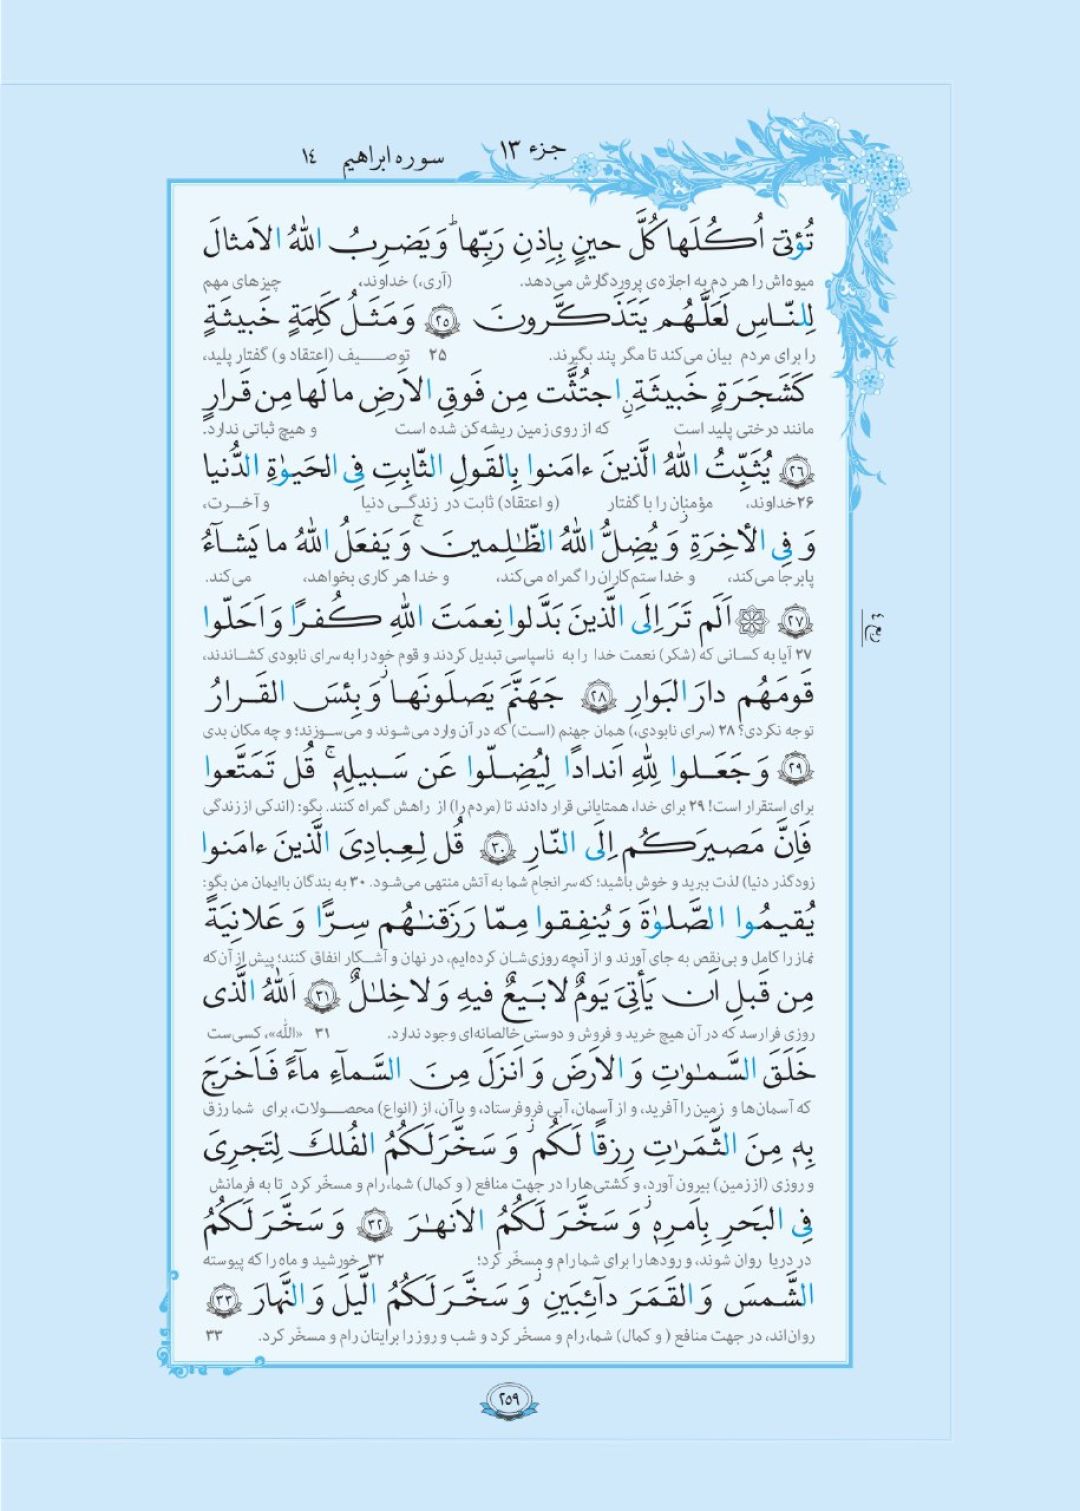 جزء ۱۳
سوره ابراهیم ۱۴
تُؤتىٓ اُكُلَها كُلَّ حينٍ بِاِذنِ رَبِّها ۗ وَ يَضرِبُ اللّٰهُ الاَمثالَ
میوه‌اش را هر دم به اجازه‌ی پروردگارش می‌دهد. (آری،) خداوند، چیزهای مهم
لِلنّاسِ لَعَلَّهُم يَتَذَكَّرونَ ﴿٢٥﴾ وَ مَثَلُ كَلِمَةٍ خَبيثَةٍ
را برای مردم بیان می‌کند تا مگر پند بگیرند. ۲۵ توصیف (اعتقاد و) گفتار پلید،
كَشَجَرَةٍ خَبيثَةِنِ اجتُثَّت مِن فَوقِ الاَرضِ ما لَها مِن قَرارٍ
مانند درختی پلید است که از روی زمین ریشه‌کن شده است و هیچ ثباتی ندارد.
﴿٢٦﴾ يُثَبِّتُ اللّٰهُ الَّذينَ ءامَنوا بِالقَولِ الثّابِتِ فِى الحَيوٰةِ الدُّنيا
۲۶ خداوند، مؤمنان را با گفتار (و اعتقاد) ثابت در زندگی دنیا و آخرت،
وَ فِى الأخِرَةِ ۖ وَ يُضِلُّ اللّٰهُ الظّٰلِمينَ ۚ وَ يَفعَلُ اللّٰهُ ما يَشآءُ
پابرجا می‌کند، و خدا ستم‌کاران را گمراه می‌کند، و خدا هر کاری بخواهد، می‌کند.
﴿٢٧﴾ ۞ اَلَم تَرَ اِلَى الَّذينَ بَدَّلوا نِعمَتَ اللّٰهِ كُفرًا وَ اَحَلّوا
ربع ٤
۲۷ آیا به کسانی که (شکر) نعمت خدا را به ناسپاسی تبدیل کردند و قوم خود را به سرای نابودی کشاندند،
قَومَهُم دارَ البَوارِ ﴿٢٨﴾ جَهَنَّمَ يَصلَونَها ۖ وَ بِئسَ القَرارُ
توجه نکردی؟ ۲۸ (سرای نابودی،) همان جهنم (است) که در آن وارد می‌شوند و می‌سوزند؛ و چه مکان بدی
﴿٢٩﴾ وَ جَعَلوا لِلّٰهِ اَندادًا لِيُضِلّوا عَن سَبيلِهٖ ۚ قُل تَمَتَّعوا
برای استقرار است! ۲۹ برای خدا، همتایانی قرار دادند تا (مردم را) از راهش گمراه کنند. بگو: (اندکی از زندگی
فَاِنَّ مَصيرَكُم اِلَى النّارِ ﴿٣٠﴾ قُل لِعِبادِىَ الَّذينَ ءامَنوا
زودگذر دنیا) لذت ببرید و خوش باشید؛ که سرانجام شما به آتش منتهی می‌شود. ۳۰ به بندگان باایمان من بگو:
يُقيمُوا الصَّلوٰةَ وَ يُنفِقوا مِمّا رَزَقنٰهُم سِرًّا وَ عَلانِيَةً
نماز را کامل و بی‌نقص به جای آورند و از آنچه روزی‌شان کرده‌ایم، در نهان و آشکار انفاق کنند؛ پیش از آن‌که
مِن قَبلِ اَن يَأتِىَ يَومٌ لا بَيعٌ فيهِ وَ لا خِلٰلٌ ﴿٣١﴾ اَللّٰهُ الَّذى
روزی فرا رسد که در آن هیچ خرید و فروش و دوستی خالصانه‌ای وجود ندارد. ۳۱ «الله»، کسی‌ست
خَلَقَ السَّمٰوٰتِ وَ الاَرضَ وَ اَنزَلَ مِنَ السَّمآءِ مآءً فَاَخرَجَ
که آسمان‌ها و زمین را آفرید، و از آسمان، آبی فرو فرستاد، و با آن، از (انواع) محصولات، برای شما رزق
بِهٖ مِنَ الثَّمَرٰتِ رِزقًا لَكُم ۖ وَ سَخَّرَ لَكُمُ الفُلكَ لِتَجرِىَ
و روزی (از زمین) بیرون آورد، و کشتی‌ها را در جهت منافع (و کمال) شما، رام و مسخّر کرد تا به فرمانش
فِى البَحرِ بِاَمرِهٖ ۖ وَ سَخَّرَ لَكُمُ الاَنهٰرَ ﴿٣٢﴾ وَ سَخَّرَ لَكُمُ
در دریا روان شوند، و رودها را برای شما رام و مسخّر کرد؛ ۳۲ خورشید و ماه را که پیوسته
الشَّمسَ وَ القَمَرَ دآئِبَينِ ۖ وَ سَخَّرَ لَكُمُ الَّيلَ وَ النَّهارَ ﴿٣٣﴾
روان‌اند، در جهت منافع (و کمال) شما، رام و مسخّر کرد و شب و روز را برایتان رام و مسخّر کرد. ۳۳
٢٥٩